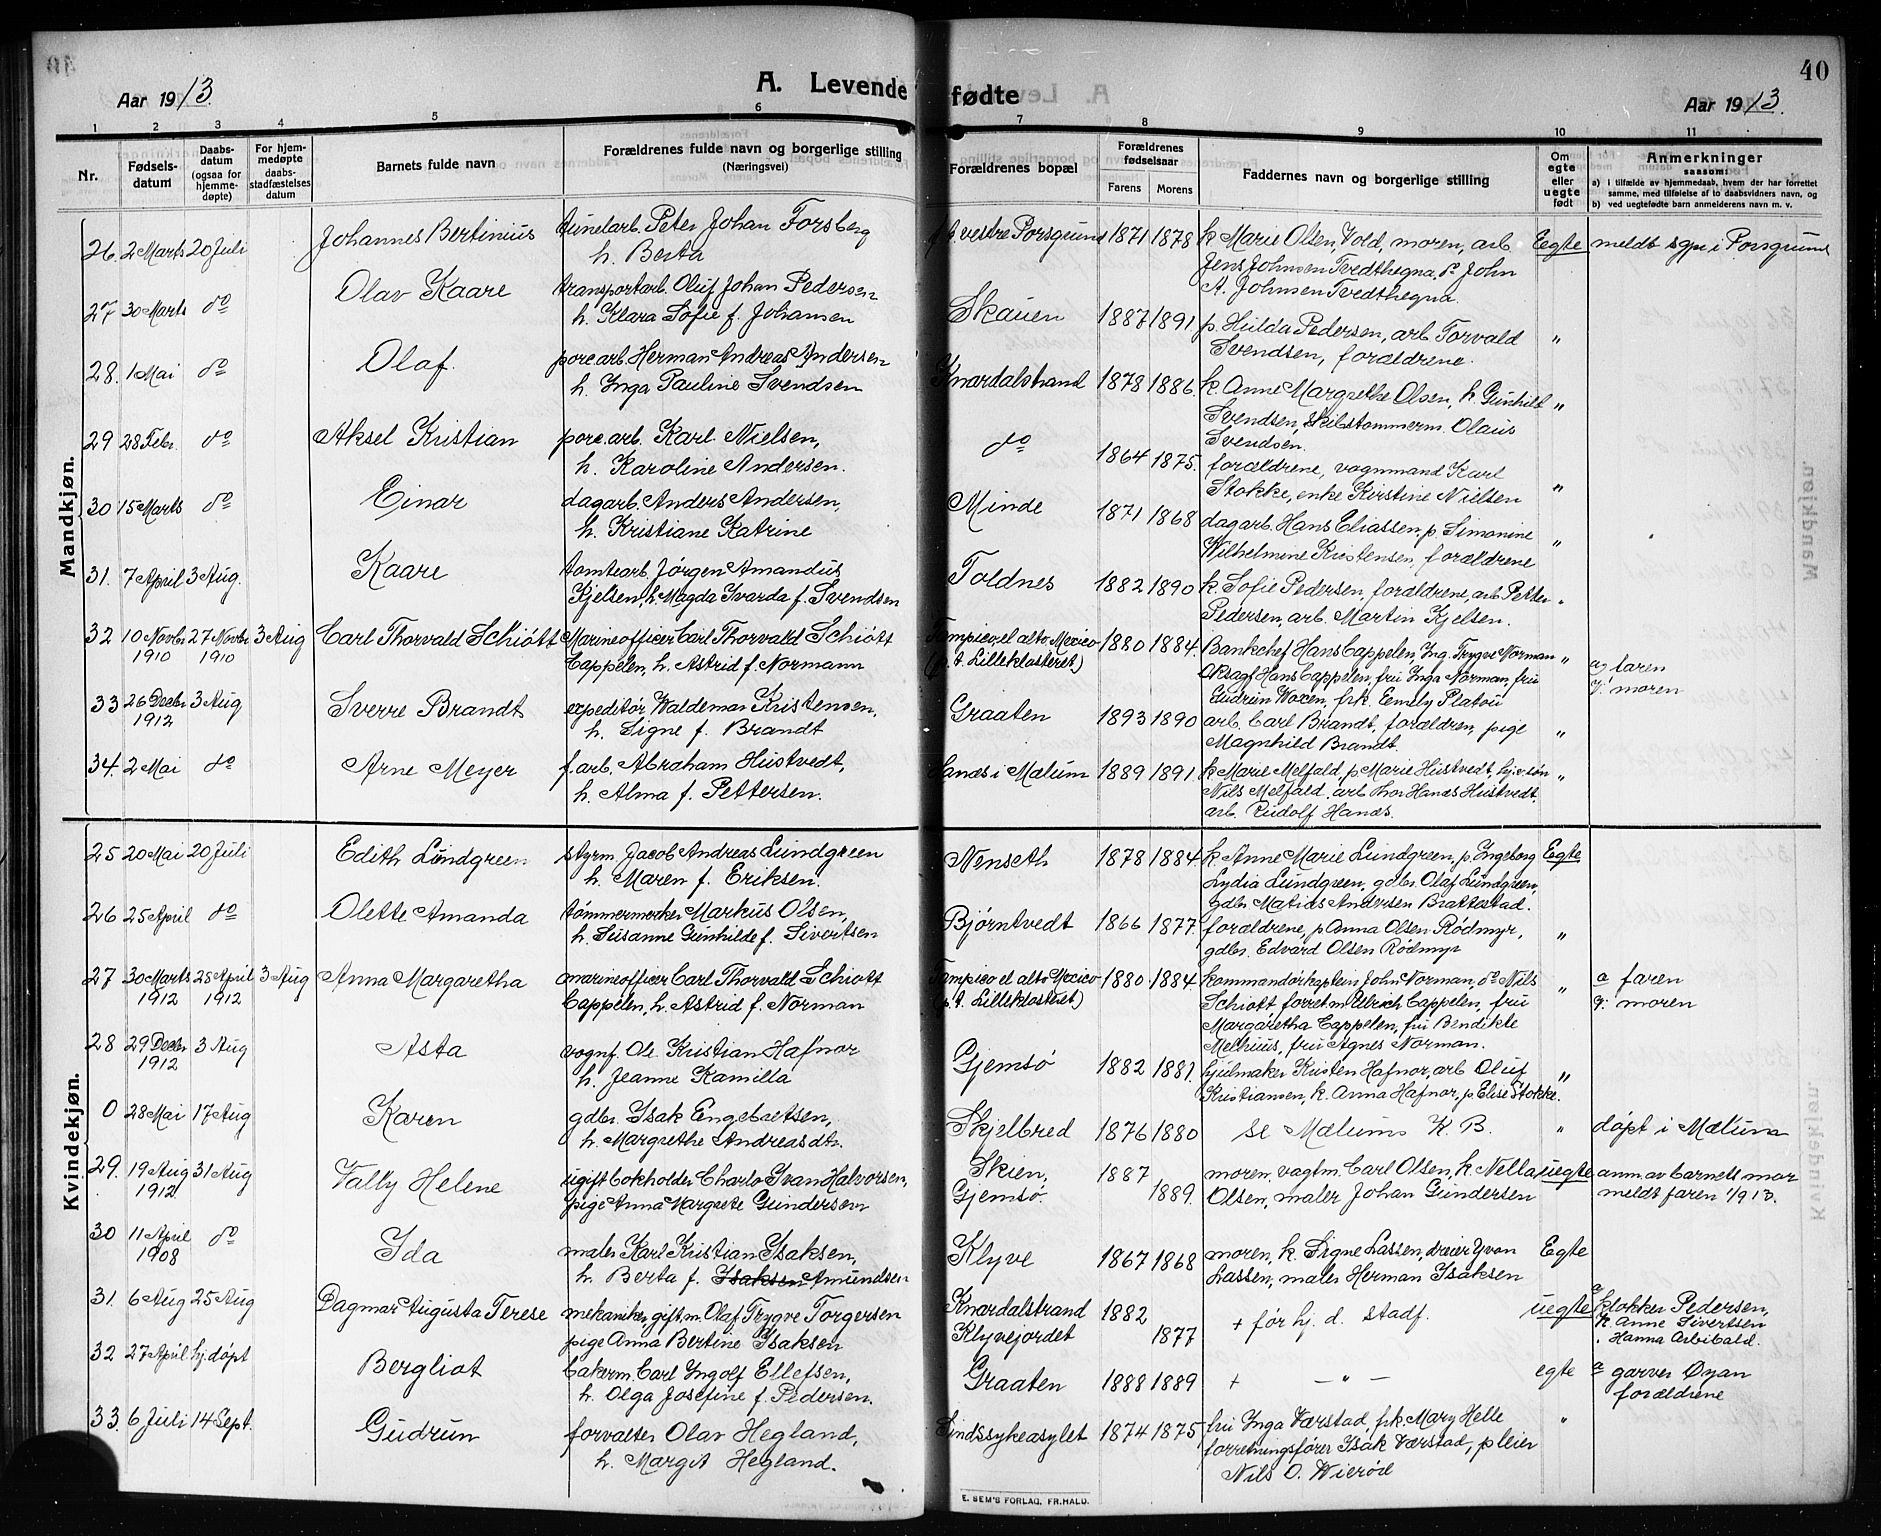 40
Aar 1913.
A. Levende fødte
Aar 1913.
1 2 3 4 5 6 7 8 9 10 11
Nr.
Fødselsdatum
Daabsdatum (ogsaa for hjemmedøpte)
For hjemmedøpte daabsstadfæstelses datum
Barnets fulde navn
Forældrenes fulde navn og borgerlige stilling (Næringsvei)
Forældrenes bopæl
Forældrenes fødselsaar
Farens Morens
Faddernes navn og borgerlige stilling
Om egte eller uegte født
Anmerkninger
saasom:
a) i tilfælde av hjemmedaab, hvem der har forrettet samme, med tilføielse af to daabsvidners navn, og
b) ved uegtefødte barn anmelderens navn m. v.
Mandkjøn.
26. 2 Marts 20 Juli Johannes Bertinius tunelarb. Peter Johan Forsberg vestre Porsgrund 1871 1878 k Marie Olsen Vold, moren, arb. Egte meldt sgpr i Porsgrund
h. Berta Jens Johnsen Tvedthegna, do John
A. Johnsen Tvedthegna.
27 30 Marts do Olav Kaare transportarb. Oluf Johan Pedersen Skauen 1887 1891. p. Hulda Pedersen, arb Torvald "
h. Klara Sofie f. Johansen Svendsen, forældrene.
28. 1 Mai do Olaf. porc.arb. Herman Andreas Andersen Knardalstrand 1878 1886. k. Anne Margrethe Olsen, h. Gunhild "
h. Inga Pauline Svendsen Svendsen, skibstømmerm. Olaus
Svendsen.
29 28 Febr. do Aksel Kristian porc.arb. Karl Nielsen, do 1864 1875. forældrene, vognmand Karl "
h. Karoline Andersen. Stokke, enke Kirstine Nielsen
30 15 Marts do Einar dagarb. Anders Andersen, Minde 1871 1868 dagarb. Hans Eliassen, p. Simonine "
h. Kristiane Katrine Wilhelmine Kristensen, forældrene
31. 7 April 3 Aug. Kaare tomtearb. Jørgen Amandus Toldnes 1882 1890 k. Sofie Pedersen, forældrene, arb. Petter "
Kjelsen, h. Magda Ivarda f. Svendsen Pedersen, arb. Martin Kjelsen.
32 10 Novbr 1910 27 Novbr 1910 3 Aug Carl Thorvald Schiøtt Marineofficer Carl Thorvald Schiött Tampico, el alto Mexico 1880 1884. Bankchef Hans Cappelen, Ing. Trygve Norman "
Cappelen, h. Astrid f. Normann (p. t. Lilleklosteret) Oksagf Hans Cappelen, fru Inga Norman, fru a faren
Gudrun Woxen, frk. Emely Platou moren
33 26 Decbr 1912 3 Aug Sverre Brandt expeditør Waldemar Kristensen, Graaten 1893 1890 arb. Carl Brandt, forældren, pige "
h. Signe f. Brandt Magnhild Brandt.
34. 2 Mai do Arne Meyer f.arb. Abraham Hustvedt, Hanæs i Mælum 1889 1891. k Marie Melfald, p Marie Hustvedt, "
h. Alma f. Pettersen. Nils Melfald, arb Thor Hanæs Hustvedt,
arb. Rudolf Hanæs.
Kvindekjøn.
25 20 Mai 20 Juli Edith Lundgreen styrm. Jacob Andreas Lundgreen Nenseth 1878 1884 k. Anne Marie Lundgreen, p. Ingeborg Egte
h. Maren f. Eriksen. Lydia Lundgreen, gdbr. Olaf Lundgreen,
gdbr. Matias Andersen Brattestad.
26 25 April do Olette Amanda tømmermerker Markus Olsen, Bjørntvedt 1866 1877. forældrene, p Anna Olsen Rødmyr, "
h. Susanne Gunhilde f. Sivertsen gdbr. Edvard Olsen Rødmyr
27 30 Marts 1912 28 April 1912 3 Aug Anna Margaretha marineofficer Carl Thorvald Schiøtt Tampico el alto Mexico 1880 1884 kommandørkaptein John Norman, do Nils "
Cappelen, h. Astrid f. Norman (p. t. Lilleklosteret) Schiött, forret.m. Ulrich Cappelen, fru a faren
Margaretha Cappelen, fru Bendikte moren
Melhuus, fru Agnes Norman.
28 29 Decbr 1912 3 Aug Asta vognf. Ole Kristian Hafnor Gjemsø 1882 1881. hjulmaker Kristen Hafnor, arb Oluf "
h. Jeanne Kamilla Kristiansen, k. Anna Hafnor, p. Elise Stokke.
0 28 Mai 17 Aug Karen gdbr. Isak Engebretsen, Skjelbred 1876 1880 se Mælums K. B. " døpt i Mælum
h. Margrethe Andreasdtr.
29. 19 Aug 1912 31 Aug Vally Helene ugift bokholder Charlo Ivan Halvorsen, Skien, 1887 moren, vagtm. Carl Olsen, k. Nella uegte anm. av barnets mor
pige Anna Margrete Gundersen Gjemsø. 1889. Olsen, maler Johan Gundersen meldt faren 1/9 13.
30 11 April 1908 do Ida maler Karl Kristian Isaksen, Klyve 1867 1868 moren, k. Signe Lassen, dreier Yvan Egte
h. Berta f. Isaksen Amundsen Lassen, maler Herman Isaksen
31. 6 Aug 25 Aug Dagmar Augusta Terese mekaniker, gift m. Olaf Trygve Torgersen Knardalstrand 1882 + før hj. d. stadf. uegte a klokker Pedersen,
pige Anna Bertine Isaksen Klyvejordet 1877 k. Anne Sivertsen
Hanna Arbibald.
32 27 April hj. døpt Bergliot bakerm. Carl Ingolf Ellefsen, Graaten 1888 1889 + — " — egte a garver Øyan
h. Olga Josefine f. Pedersen. forældrene
33. 6 Juli 14 Sept. Gudrun forvalter Olav Hegland, Sindssykeasylet 1874 1875, fru Inga Værstad, frk. Mary Helle "
h. Margit Hegland. forretningsfører Isak Værstad, pleier
Nils O. Wierød
E. SEM'S FORLAG, FR.HALD.